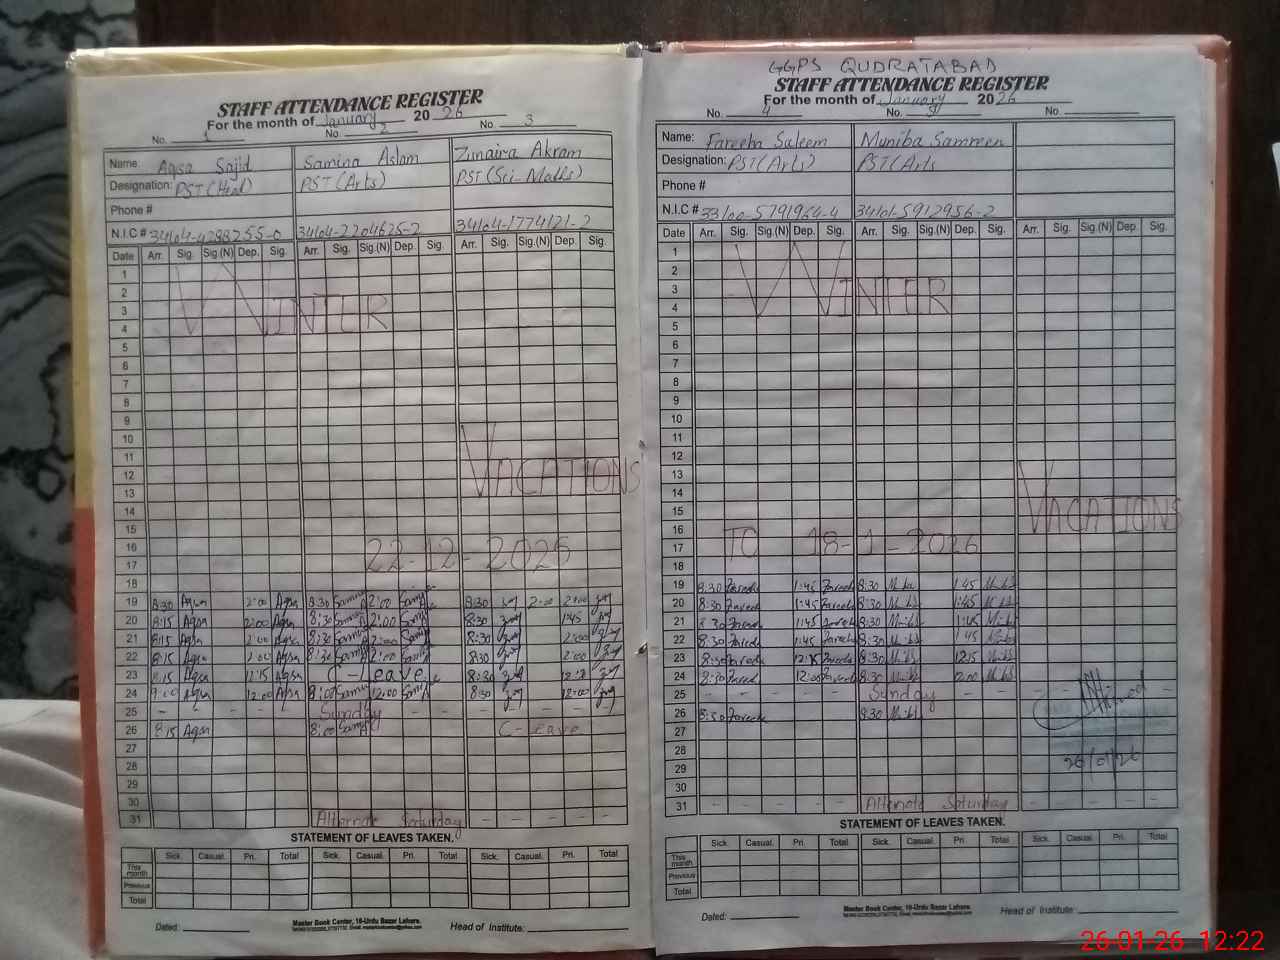 STAFF ATTENDANCE REGISTER
For the month of January 2026
No. 1 No. 2 No. 3
Name: Aqsa Sajid Samina Aslam Zunaira Akram
Designation: PST(Head) PST(Arts) PST(Sci-Maths)
Phone #
N.I.C # 34104-4288255-0 34104-2204625-2 34104-1774121-2
Date Arr. Sig. Sig.(N) Dep. Sig. Arr. Sig. Sig.(N) Dep. Sig. Arr. Sig. Sig.(N) Dep. Sig.
1
2
3 WINTER
4
5
6
7
8
9
10
11
12 VACATIONS
13
14
15
16 22-12-2025
17
18
19 8:30 Aqsa 2:00 Aqsa 8:30 2:00 8:30 2:00 2:00
20 8:15 Aqsa 2:00 Aqsa 8:30 2:00 8:30 1:45
21 8:15 Aqsa 2:00 Aqsa 8:30 2:00 8:30 2:00
22 8:15 Aqsa 2:00 Aqsa 8:30 2:00 8:30 2:00
23 8:15 Aqsa 12:15 Aqsa C-Leave 8:30
24 9:00 Aqsa 12:00 Aqsa 8:00 12:00 8:30 12:00
25 Sunday
26 8:15 Aqsa 8:00 C-Leave
27
28
29
30
31 Alternate Saturday
STATEMENT OF LEAVES TAKEN.
Sick. Casual. Pri. Total Sick. Casual. Pri. Total Sick. Casual. Pri. Total
This month
Previous
Total
Master Book Center, 16-Urdu Bazar Lahore.
Dated: Head of Institute:
GGPS QUDRATABAD
STAFF ATTENDANCE REGISTER
For the month of January 2026
No. 4 No. 5 No.
Name: Fareeha Saleem Muniba Samreen
Designation: PST(Arts) PST(Arts
Phone #
N.I.C # 33100-5791964-4 34101-5912956-2
Date Arr. Sig. Sig.(N) Dep. Sig. Arr. Sig. Sig.(N) Dep. Sig. Arr. Sig. Sig.(N) Dep. Sig.
1
2
3 WINTER
4
5
6
7
8
9
10
11
12
13
14 VACATIONS
15
16
17 TO 18-1-2026
18
19 8:30 1:45 8:30 1:45
20 8:30 1:45 8:30 1:45
21 8:30 1:45 8:30 1:45
22 8:30 1:45 8:30 1:45
23 8:30 12:15 8:30 12:15
24 8:30 12:00 8:30 12:00
25 Sunday
26 8:30 8:30
27
28
29 26/01/26
30
31 Alternate Saturday
STATEMENT OF LEAVES TAKEN.
Sick. Casual. Pri. Total Sick. Casual. Pri. Total Sick. Casual. Pri. Total
This month
Previous
Total
Master Book Center, 16-Urdu Bazar Lahore.
Dated: Head of Institute:
26-01-26 12:22